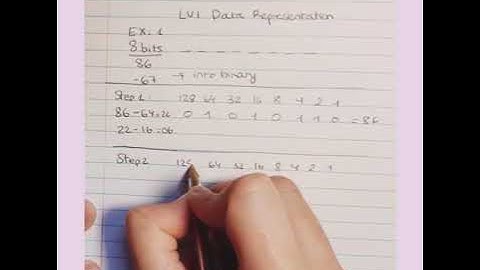 LV1 Data Representation
EX: 1
8 bits _ _ _ _ _ _ _ _
86
-67 → into binary
Step 1: 128 64 32 16 8 4 2 1
86-64=22 0 1 0 1 0 1 1 0 = 86
22-16=06
Step 2 128 64 32 16 8 4 2 1